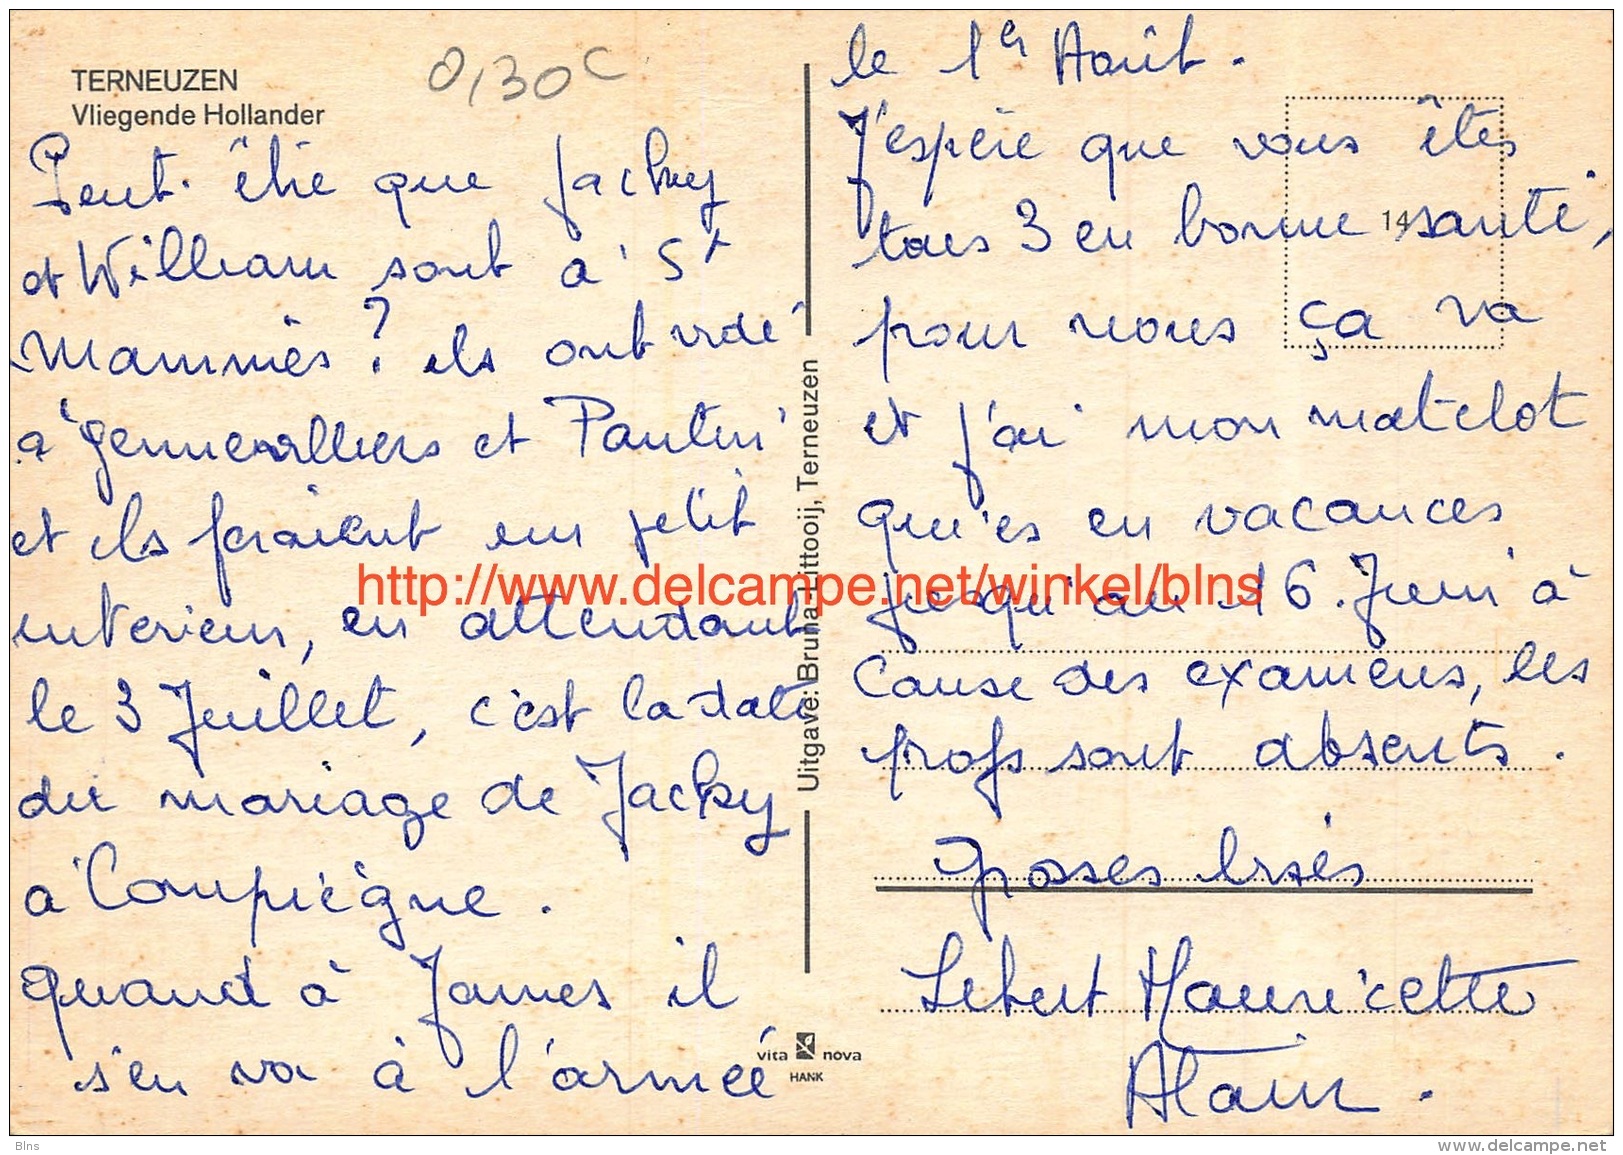 TERNEUZEN
Vliegende Hollander
0,30 c
Peut-être que Jacky
et William sont à St
Mammès? ils ont vidé
à Gennevilliers et Pantin
et ils feraient un petit
interieur, en attendant
le 3 Juillet, c'est la date
du mariage de Jacky
à Compiègne.
quand à James il
s'en va à l'armée
Uitgave: Bruna-Littooij, Terneuzen
vita nova
HANK
le 1er Août.
J'espère que vous êtes
tous 3 en bonne santé,
14
pour nous ça va
et j'ai mon matelot
qui es en vacances
jusqu'au 16. Juin à
cause des examens, les
profs sont absents.
Grosses bises
Lebert Mauricette
Alain.
http://www.delcampe.net/winkel/blns
Blns
www.delcampe.net